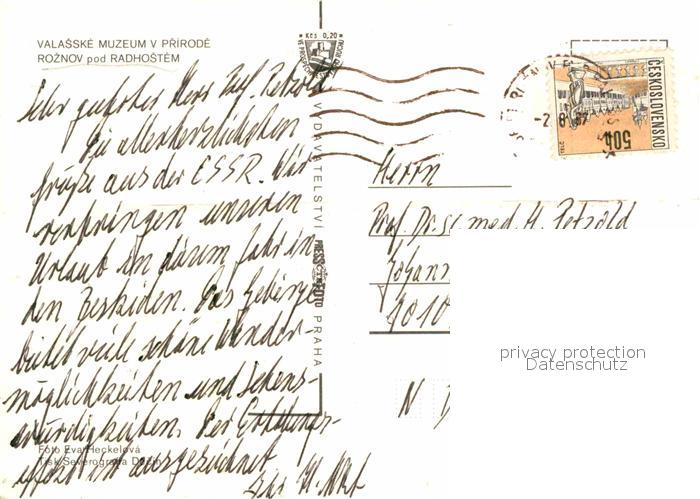 VALAŠSKÉ MUZEUM V PŘÍRODĚ
ROŽNOV pod RADHOŠTĚM
Sehr geehrter Herr Prof. Petzold
Die allerherzlichsten
Grüße aus der ČSSR. Wir
verbringen unseren
Urlaub in diesem Jahr in
den Beskiden. Das Gebirge
bietet viele schöne Wander-
möglichkeiten und Sehens-
würdigkeiten. Der
ist ausgezeichnet
Ihr
Foto Eva Heckelová
Tisk Severografia
Kčs 0,20
VYDAVATELSTVÍ PRESSFOTO PRAHA
-2.8.
ČESKOSLOVENSKO
50h
Herrn
Prof. Dr. sc. med. H. Petzold
Johann
9010
privacy protection
Datenschutz